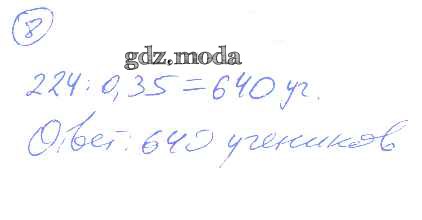 8
gdz.moda
224 : 0,35 = 640 уч.
Ответ: 640 учеников